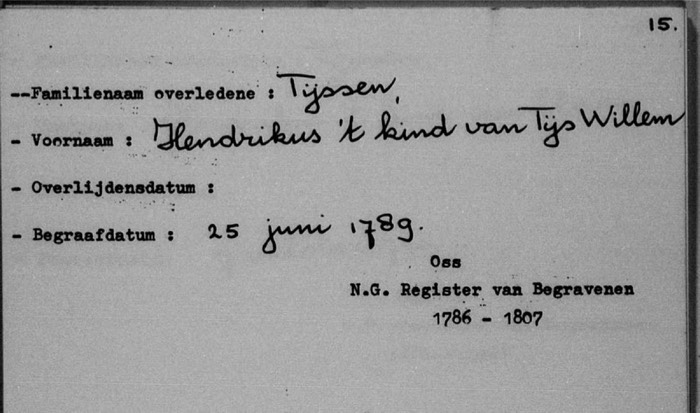 15.
--Familienaam overledene : Tijssen,
- Voornaam : Hendrikus 't kind van Tijs Willem
- Overlijdensdatum :
- Begraafdatum : 25 juni 1789.
Oss
N.G. Register van Begravenen
1786 - 1807